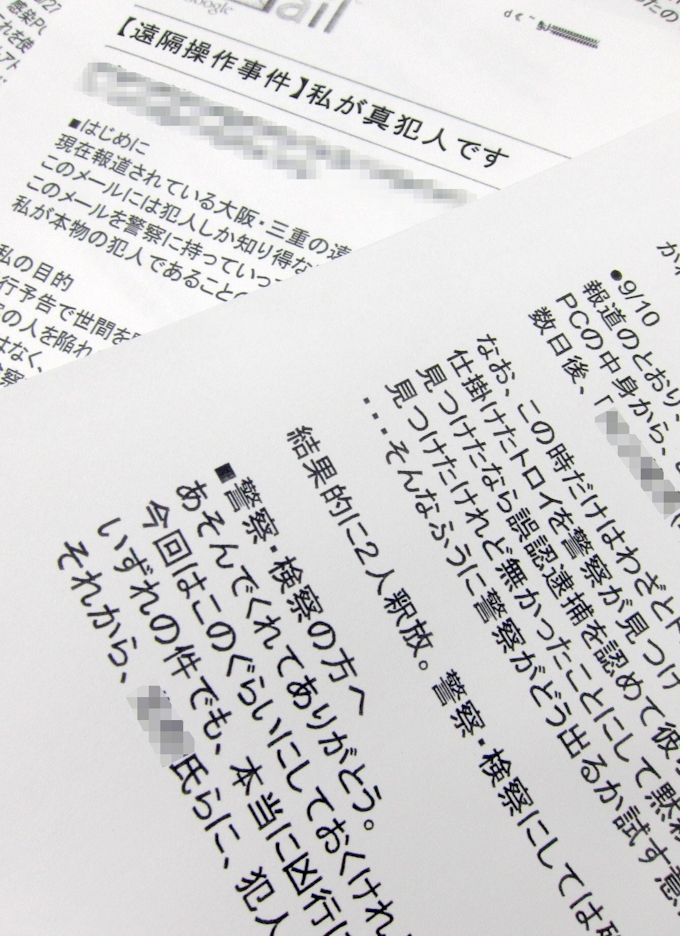 Google
ail
【遠隔操作事件】私が真犯人です
■はじめに
現在報道されている大阪・三重の遠
このメールには犯人しか知り得な
このメールを警察に持っていっ
私が本物の犯人であること
私の目的
行予告で世間を
の人を陥れ
はなく、
●9/10
報道のとおり、
PCの中身から、
数日後、「
なお、この時だけはわざと
仕掛けたトロイを警察が見つけ
見つけたなら誤認逮捕を認めて彼
見つけたけれど無かったことにして黙
...そんなふうに警察がどう出るか試す意
結果的に2人釈放。警察・検察にしては
■警察・検察の方へ
あそんでくれてありがとう。
今回はこのぐらいにしておくけれ
いずれの件でも、本当に凶行に
それから、
氏らに、犯人